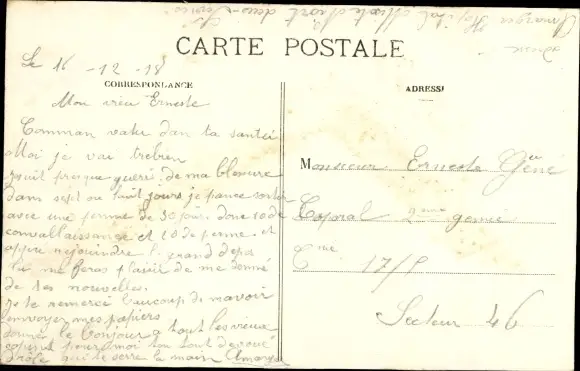 Amorgen Hopital Mixte Niort deux-Sèvres
adresse
CARTE POSTALE
Le 16 -12 -18
CORRESPONDANCE
Mon vieu Erneste
Comman vatu dan ta santée
Moi je vai trebien
jsuit presque guerri de ma blesure
dans sept ou huit jours je pance sortir
avec une perme de 30 jour. donc 10 de
convallaissance et 20 de perme. et
appré rejoindre le grand depos
tu me feras plaisir de me donné
de tes nouvelles.
je te remerci beaucoup de mavoir
envoyer mes papiers
donner le bonjour a tout les vieux
copins pour moi ton tout devoué
drole qui te serre la main
ADRESSE
Monsieur Erneste Géné
Caporal 2eme genie
Cme 17/
Secteur 46